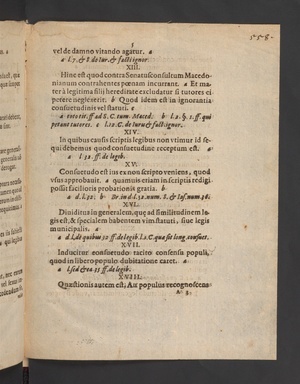 5
558.
vel de damno vitando agatur. a
a l. 7. & 8. de iur. & facti ignor.
XIII.
Hinc est quod contra Senatusconsultum Macedo-
nianum contrahentes pœnam incurrant. a Et ma-
ter à legitima filij hereditate excludatur si tutores ei-
petere neglexerit. b Quod idem est in ignorantia
consuetudinis vel statuti.
a toto tit. ff ad S. C. tum Maced. b l. 2. §. 1. ff. qui
petant tutores. c l. 12. C. de iuru & facti ignor.
XIV.
In quibus causis scriptis legibus non vtimur id se-
qui debemus quod consuetudine receptum est. a
a l 32. ff. de legib.
XV.
Consuetudo est ius ex non scripto veniens, quod
vsus approbauit. a quamuis etiam in scriptis redigi
possit facilioris probationis gratia. b
a d. l. 32. b
XVI.
Diuiditur in generalem, quæ ad similitudinem le-
gis est, & specialem habentem vim statuti, siue legis
municipalis. a
a d. l. de quibus 32 ff. de legib. l. 2. C. quæ sit long. consuet.
XVII.
Inducitur consuetudo tacito consensu populi,
quod in libero populo dubitatione caret. a
ff. de legib.
XVIII.
Quæstionis autem est, An populus recognoscens